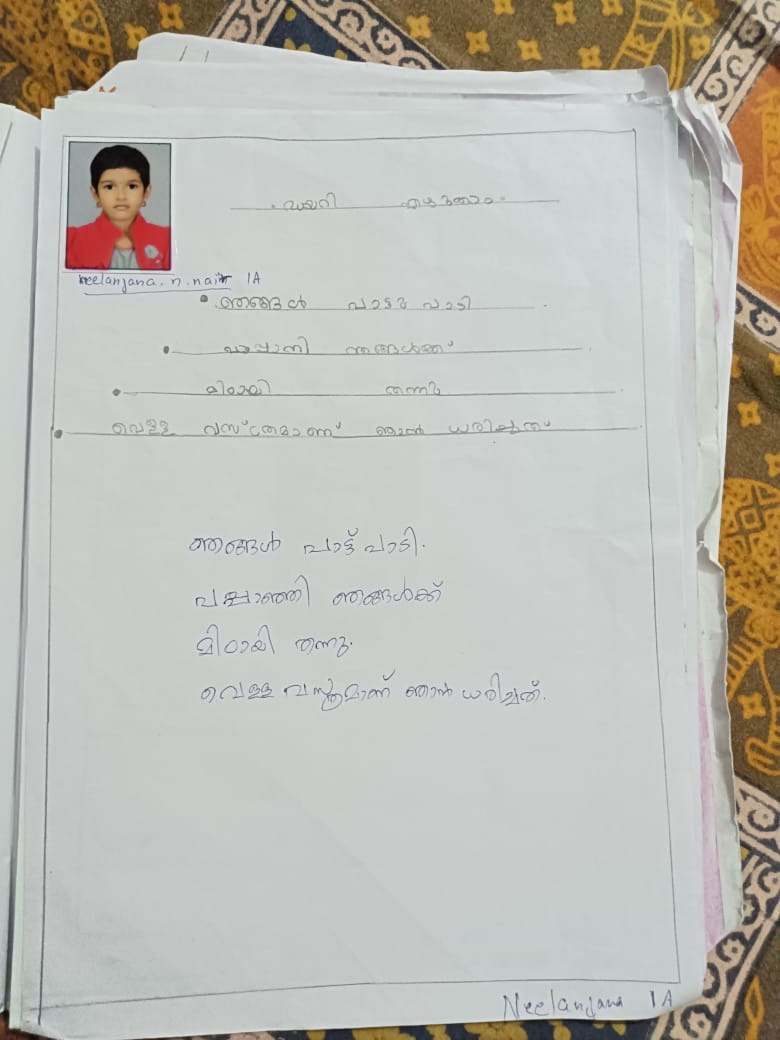 ഡയറി എഴുത്താം
Neelanjana. n. nair 1A
ഞങ്ങൾ പാട്ടു പാടി
ഞങ്ങൾക്ക്
മിഠായി തന്നു
വെള്ള വസ്ത്രമാണ് ഞാൻ ധരിച്ചത്
ഞങ്ങൾ പാട്ട് പാടി.
ഞങ്ങൾക്ക്
മിഠായി തന്നു.
വെള്ള വസ്ത്രമാണ് ഞാൻ ധരിച്ചത്.
Neelanjana 1A